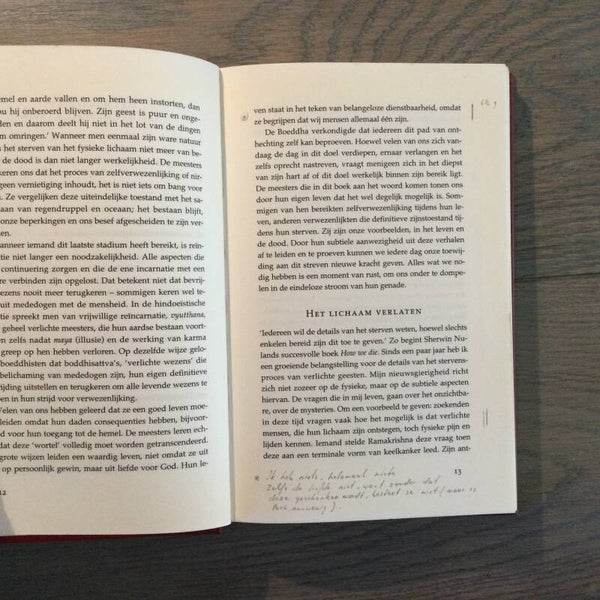 emel en aarde vallen en om hem heen instorten, dan
ou hij onberoerd blijven. Zijn geest is puur en onge-
den en daarom deelt hij niet in het lot van de dingen
om omringen.' Wanneer men eenmaal zijn ware natuur
is het sterven van het fysieke lichaam niet meer van be-
de dood is dan niet langer werkelijkheid. De meesters
ren ook dat het proces van zelfverwezenlijking of nir-
geen vernietiging inhoudt, het is niet iets om bang voor
Ze vergelijken deze uiteindelijke toestand met het sa-
aan van regendruppel en oceaan; het bestaan blijft,
onze beperkingen en ons besef afgescheiden te zijn ver-
en.
anneer iemand dit laatste stadium heeft bereikt, is reïn-
tie niet langer een noodzakelijkheid. Alle aspecten die
continuering zorgen en die de ene incarnatie met een
verbinden zijn opgelost. Dat betekent niet dat bevrij-
wezens nooit meer terugkeren – sommigen keren wel te-
uit mededogen met de mensheid. In de hindoeïstische
tie spreekt men van vrijwillige reïncarnatie, vyutthana,
geheel verlichte meesters, die hun aardse bestaan voort-
en zelfs nadat maya (illusie) en de werking van karma
greep op hen hebben verloren. Op dezelfde wijze gelo-
boeddhisten dat boddhisattva's, 'verlichte wezens' die
belichaming van mededogen zijn, hun eigen definitieve
rijding uitstellen en terugkeren om alle levende wezens te
en in hun strijd voor verwezenlijking.
Velen van ons hebben geleerd dat ze een goed leven moe-
leiden omdat hun daden consequenties hebben, bijvoor-
voor hun toegang tot de hemel. De meesters leren ech-
dat deze 'wortel' volledig moet worden getranscendeerd.
grote wijzen leiden een waardig leven, niet omdat ze uit
op persoonlijk gewin, maar uit liefde voor God. Hun le-
12
ven staat in het teken van belangeloze dienstbaarheid, omdat
ze begrijpen dat wij mensen allemaal één zijn.
De Boeddha verkondigde dat iedereen dit pad van ont-
hechting zelf kan beproeven. Hoewel velen van ons zich van-
daag de dag in dit doel verdiepen, ernaar verlangen en het
zelfs oprecht nastreven, vraagt menigeen zich in het diepst
van zijn hart af of dit doel werkelijk binnen zijn bereik ligt.
De meesters die in dit boek aan het woord komen tonen ons
door hun eigen leven dat het wel degelijk mogelijk is. Som-
migen van hen bereikten zelfverwezenlijking tijdens hun le-
ven, anderen verwezenlijkten die definitieve zijnstoestand tij-
dens hun sterven. Zij zijn onze voorbeelden, in het leven en
de dood. Door hun subtiele aanwezigheid uit deze verhalen
af te leiden en te proeven kunnen we iedere dag onze toewij-
ding aan dit streven nieuwe kracht geven. Alles wat we no-
dig hebben is een moment van rust, om ons onder te dompe-
len in de eindeloze stroom van hun genade.
Het lichaam verlaten
'Iedereen wil de details van het sterven weten, hoewel slechts
enkelen bereid zijn dit toe te geven.' Zo begint Sherwin Nu-
lands succesvolle boek How we die. Sinds een paar jaar heb ik
een groeiende belangstelling voor de details van het stervens-
proces van verlichte geesten. Mijn nieuwsgierigheid richt
zich niet zozeer op de fysieke, maar op de subtiele aspecten
hiervan. De vragen die in mij leven, gaan over het onzichtba-
re, over de mysteries. Om een voorbeeld te geven: zoekenden
in deze tijd vragen vaak hoe het mogelijk is dat verlichte
mensen, die hun lichaam zijn ontstegen, toch fysieke pijn en
lijden kennen. Iemand stelde Ramakrishna deze vraag toen
deze aan een terminale vorm van keelkanker leed. Zijn ant-
13
* Ik heb niets, helemaal niets
Zelfs de liefde niet, want zonder dat
deze geschonken wordt, bestaat ze niet (maar is